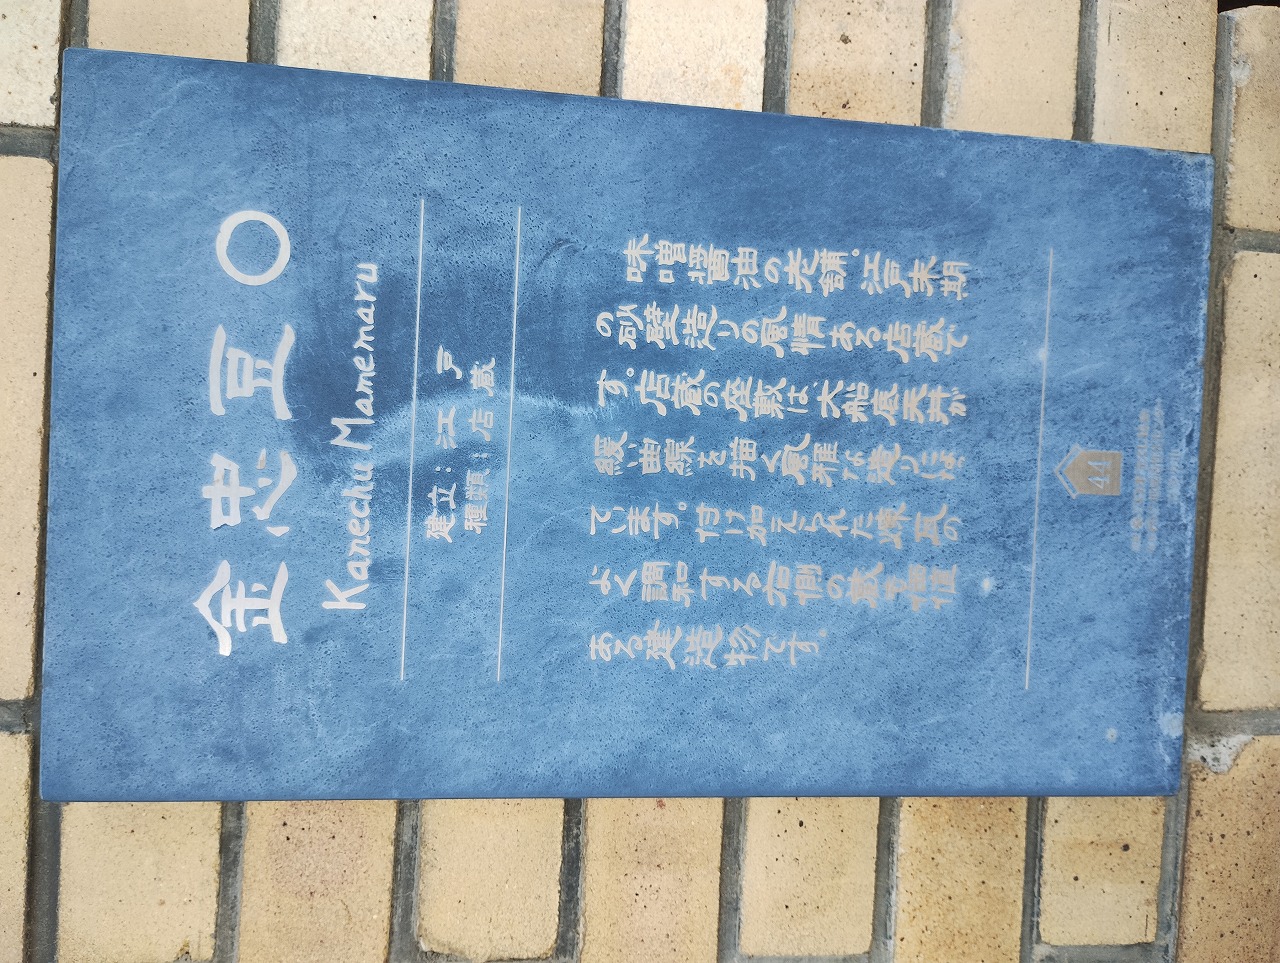 金忠豆〇
Kanechu Mamemaru
建立：江戸
種類：店蔵
味噌醤油の老舗。江戸末期
の砂壁造りの風情ある店蔵で
す。店蔵の座敷は大船底天井が
緩曲線を描く風雅な造りに
ています。付け加えられた煉瓦の
よく調和する右側の蔵も価値
ある建造物です。
44